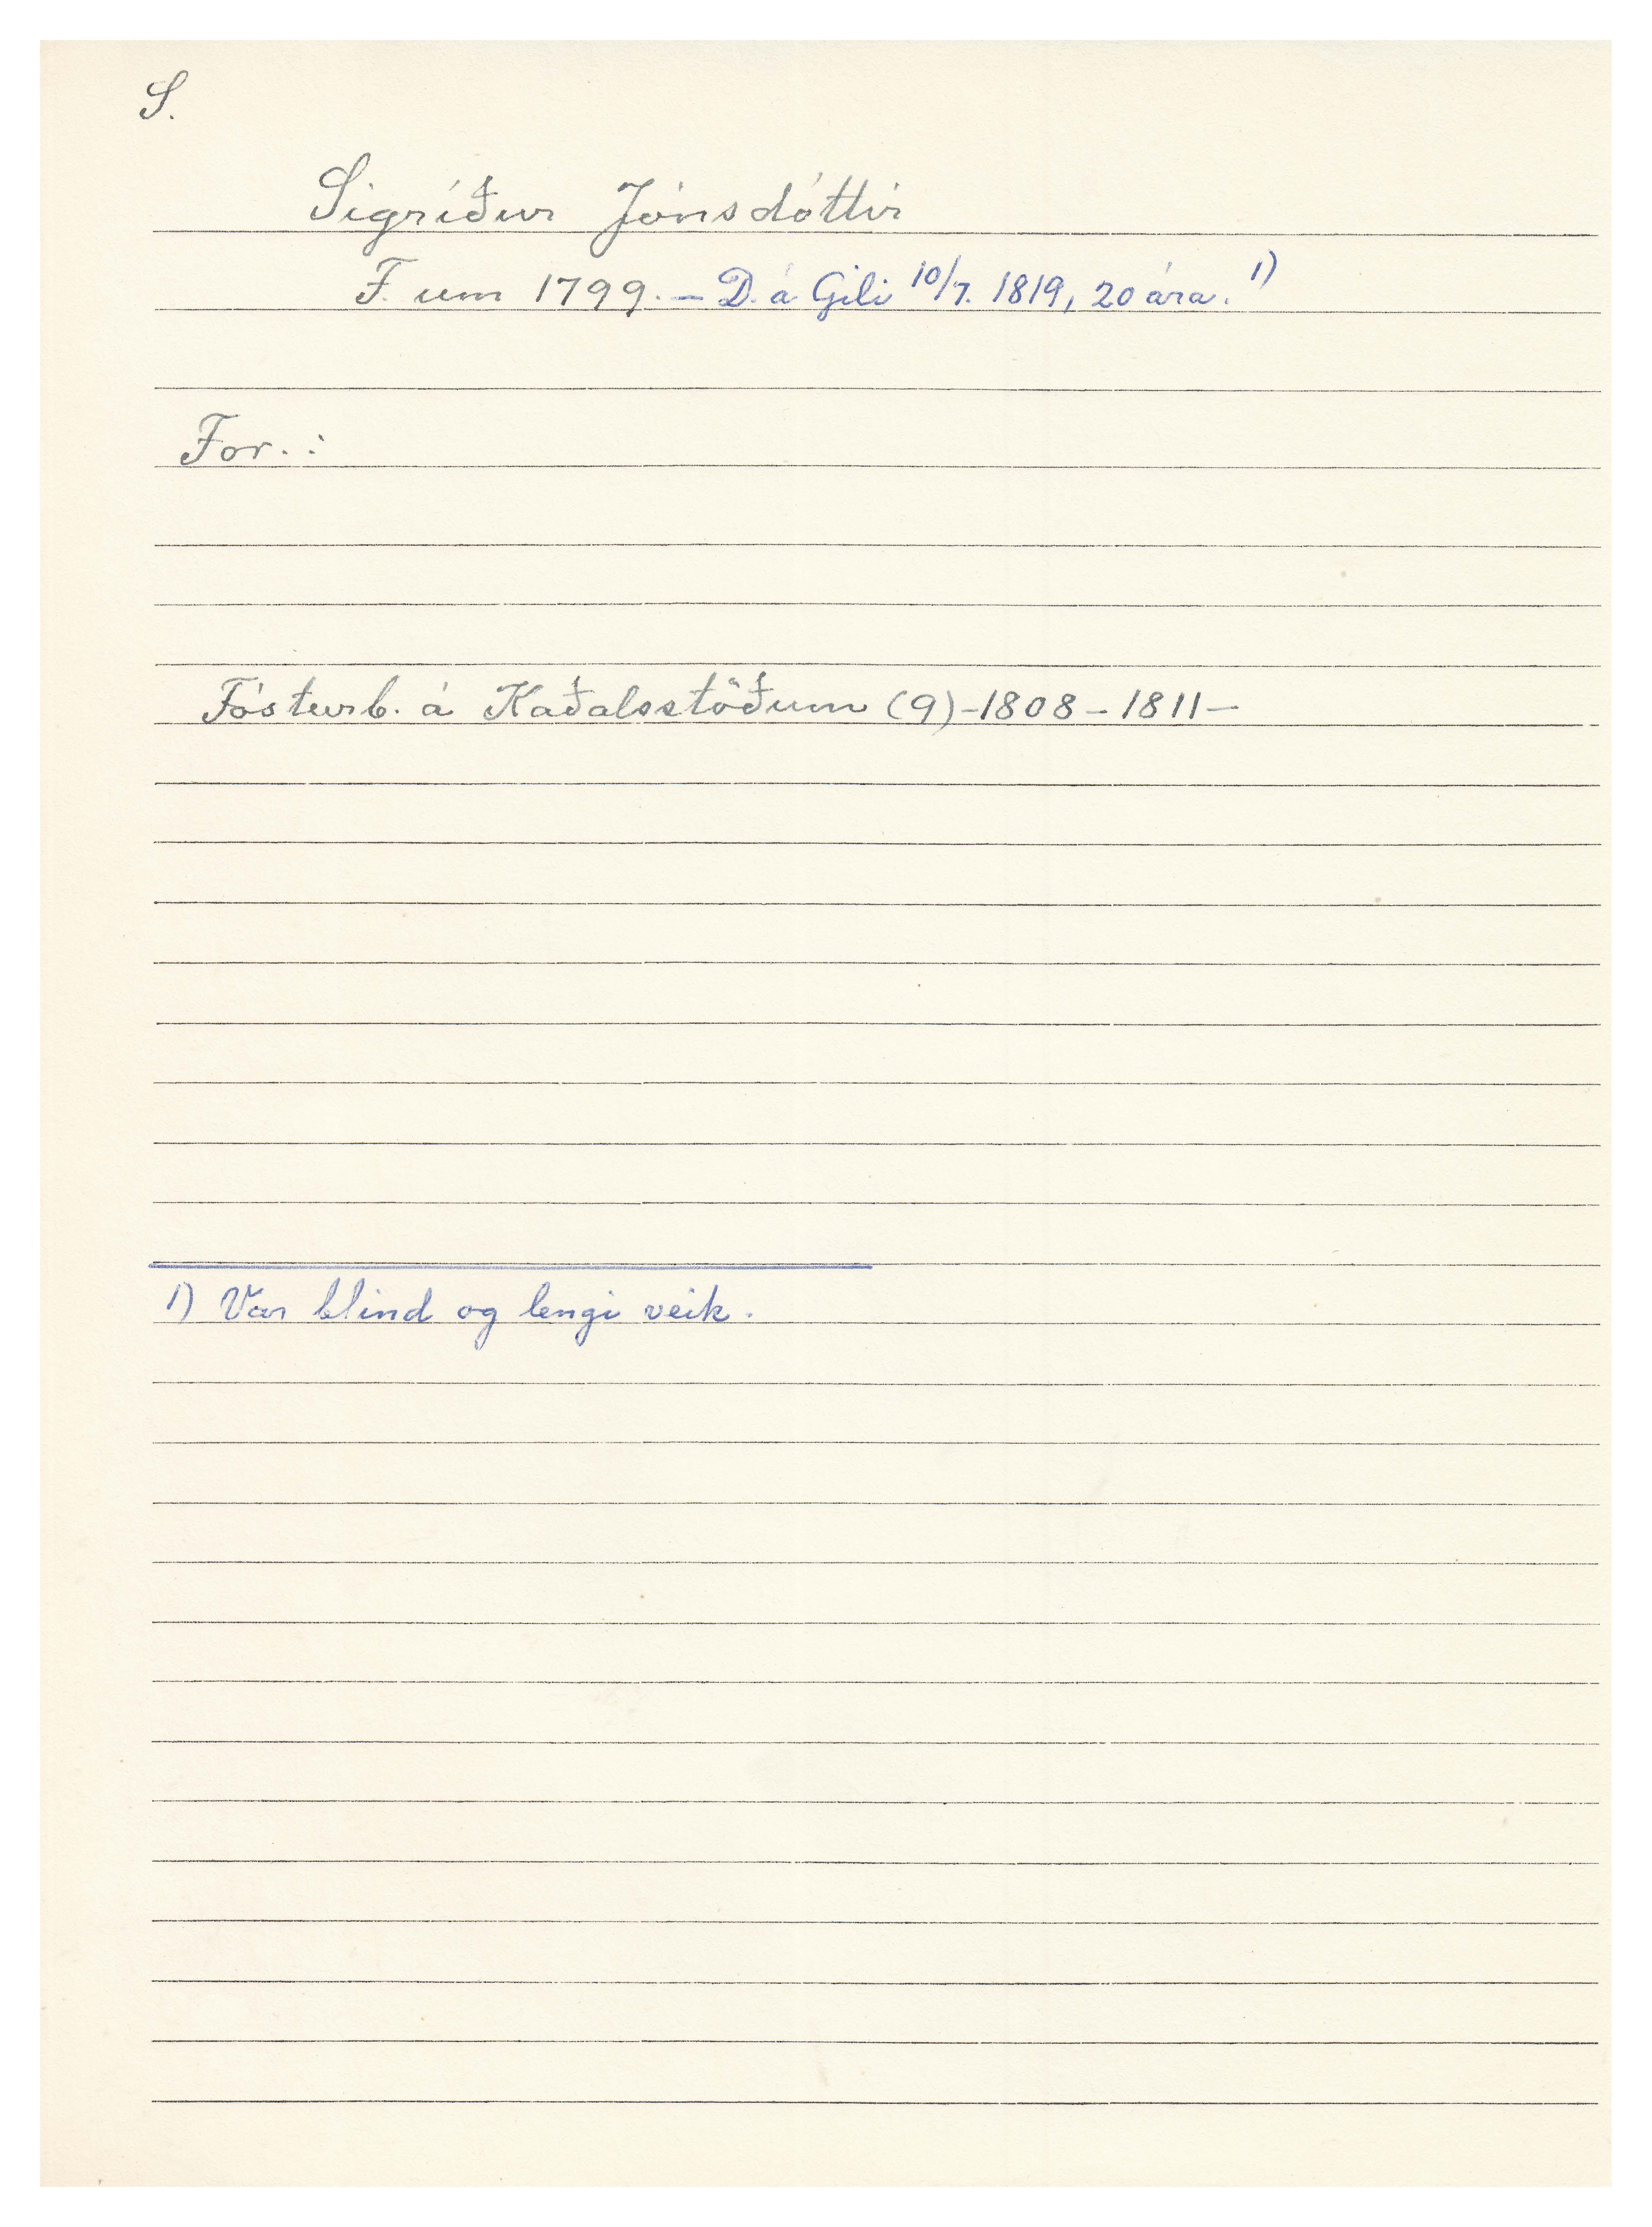 S.
Sigríður Jónsdóttir
F. um 1799. – D. á Gili 10/7. 1819, 20 ára. 1)
For. :
Fósturb. á Kaðalsstöðum (9) – 1808 – 1811 –
1) Var blind og lengi veik.